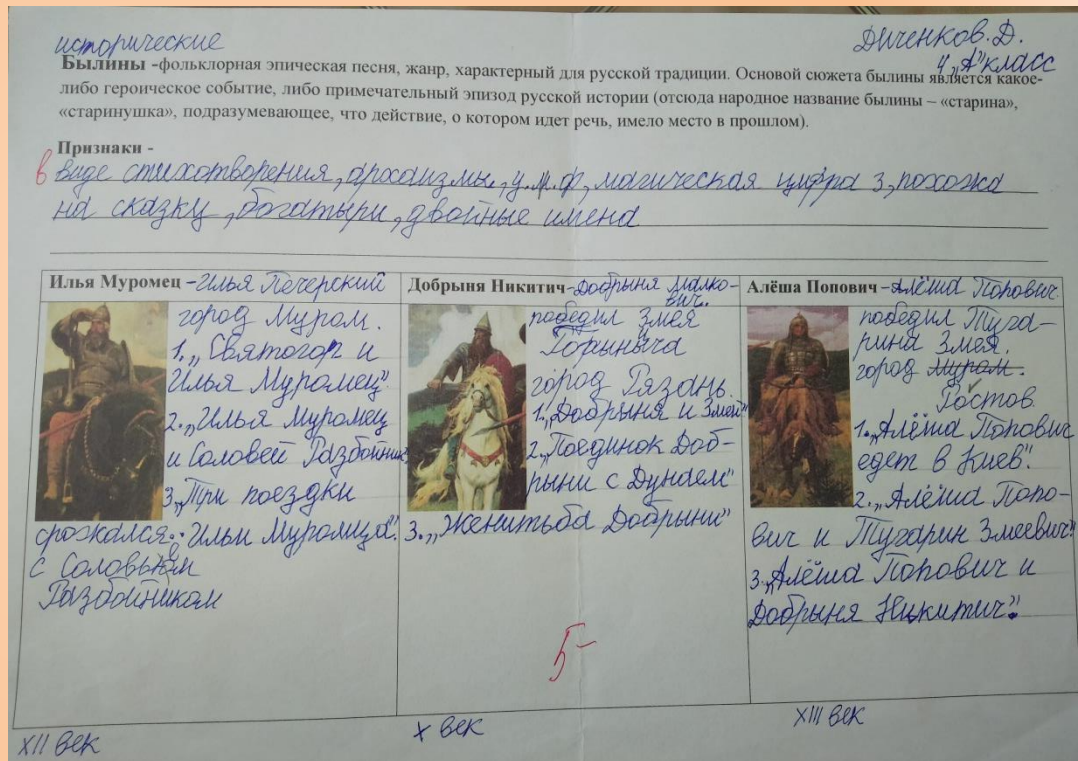 исторические
Диченков. Д.
4 „А" класс
Былины -фольклорная эпическая песня, жанр, характерный для русской традиции. Основой сюжета былины является какое-
либо героическое событие, либо примечательный эпизод русской истории (отсюда народное название былины – «старина»,
«старинушка», подразумевающее, что действие, о котором идет речь, имело место в прошлом).
Признаки -
в виде стихотворения, архаизмы, у.м.ф, магическая цифра 3, похожа
на сказку, богатыри, двойные имена
Илья Муромец - Илья Печерский
город Муром.
1. „Святогор и
Илья Муромец"
2. „Илья Муромец
и Соловей Разбойник"
3. „Три поездки
Ильи Муромца".
срожался
с Соловьём
Разбойником
XII век
Добрыня Никитич - Добрыня Малко-
вич.
победил Змея
Горыныча
город Рязань.
1. „Добрыня и Змей"
2. „Поединок Доб-
рыни с Дунаем"
3. „Женитьба Добрыни"
5-
X век
Алёша Попович - Алёша Попович.
победил Туга-
рина Змея.
город Муром.
Ростов.
1. „Алёша Попович
едет в Киев".
2. „Алёша Попо-
вич и Тугарин Змеевич"
3. „Алёша Попович и
Добрыня Никитич".
XIII век